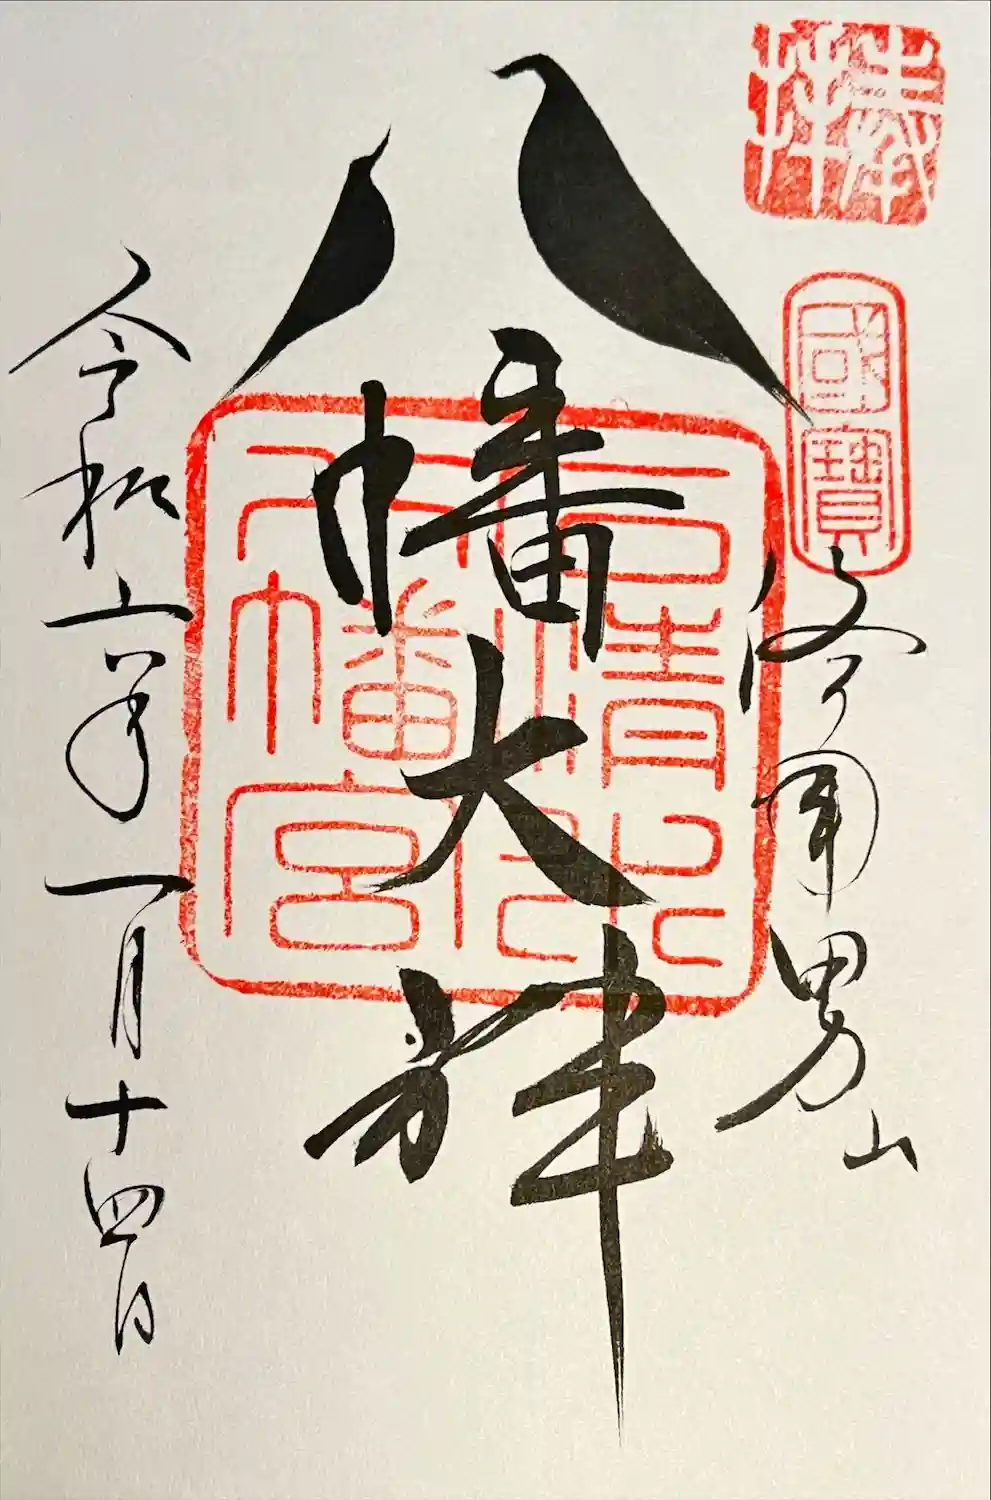 奉拝
國寶
洛南男山
八幡大神
石清水八幡宮
令和六年一月十四日